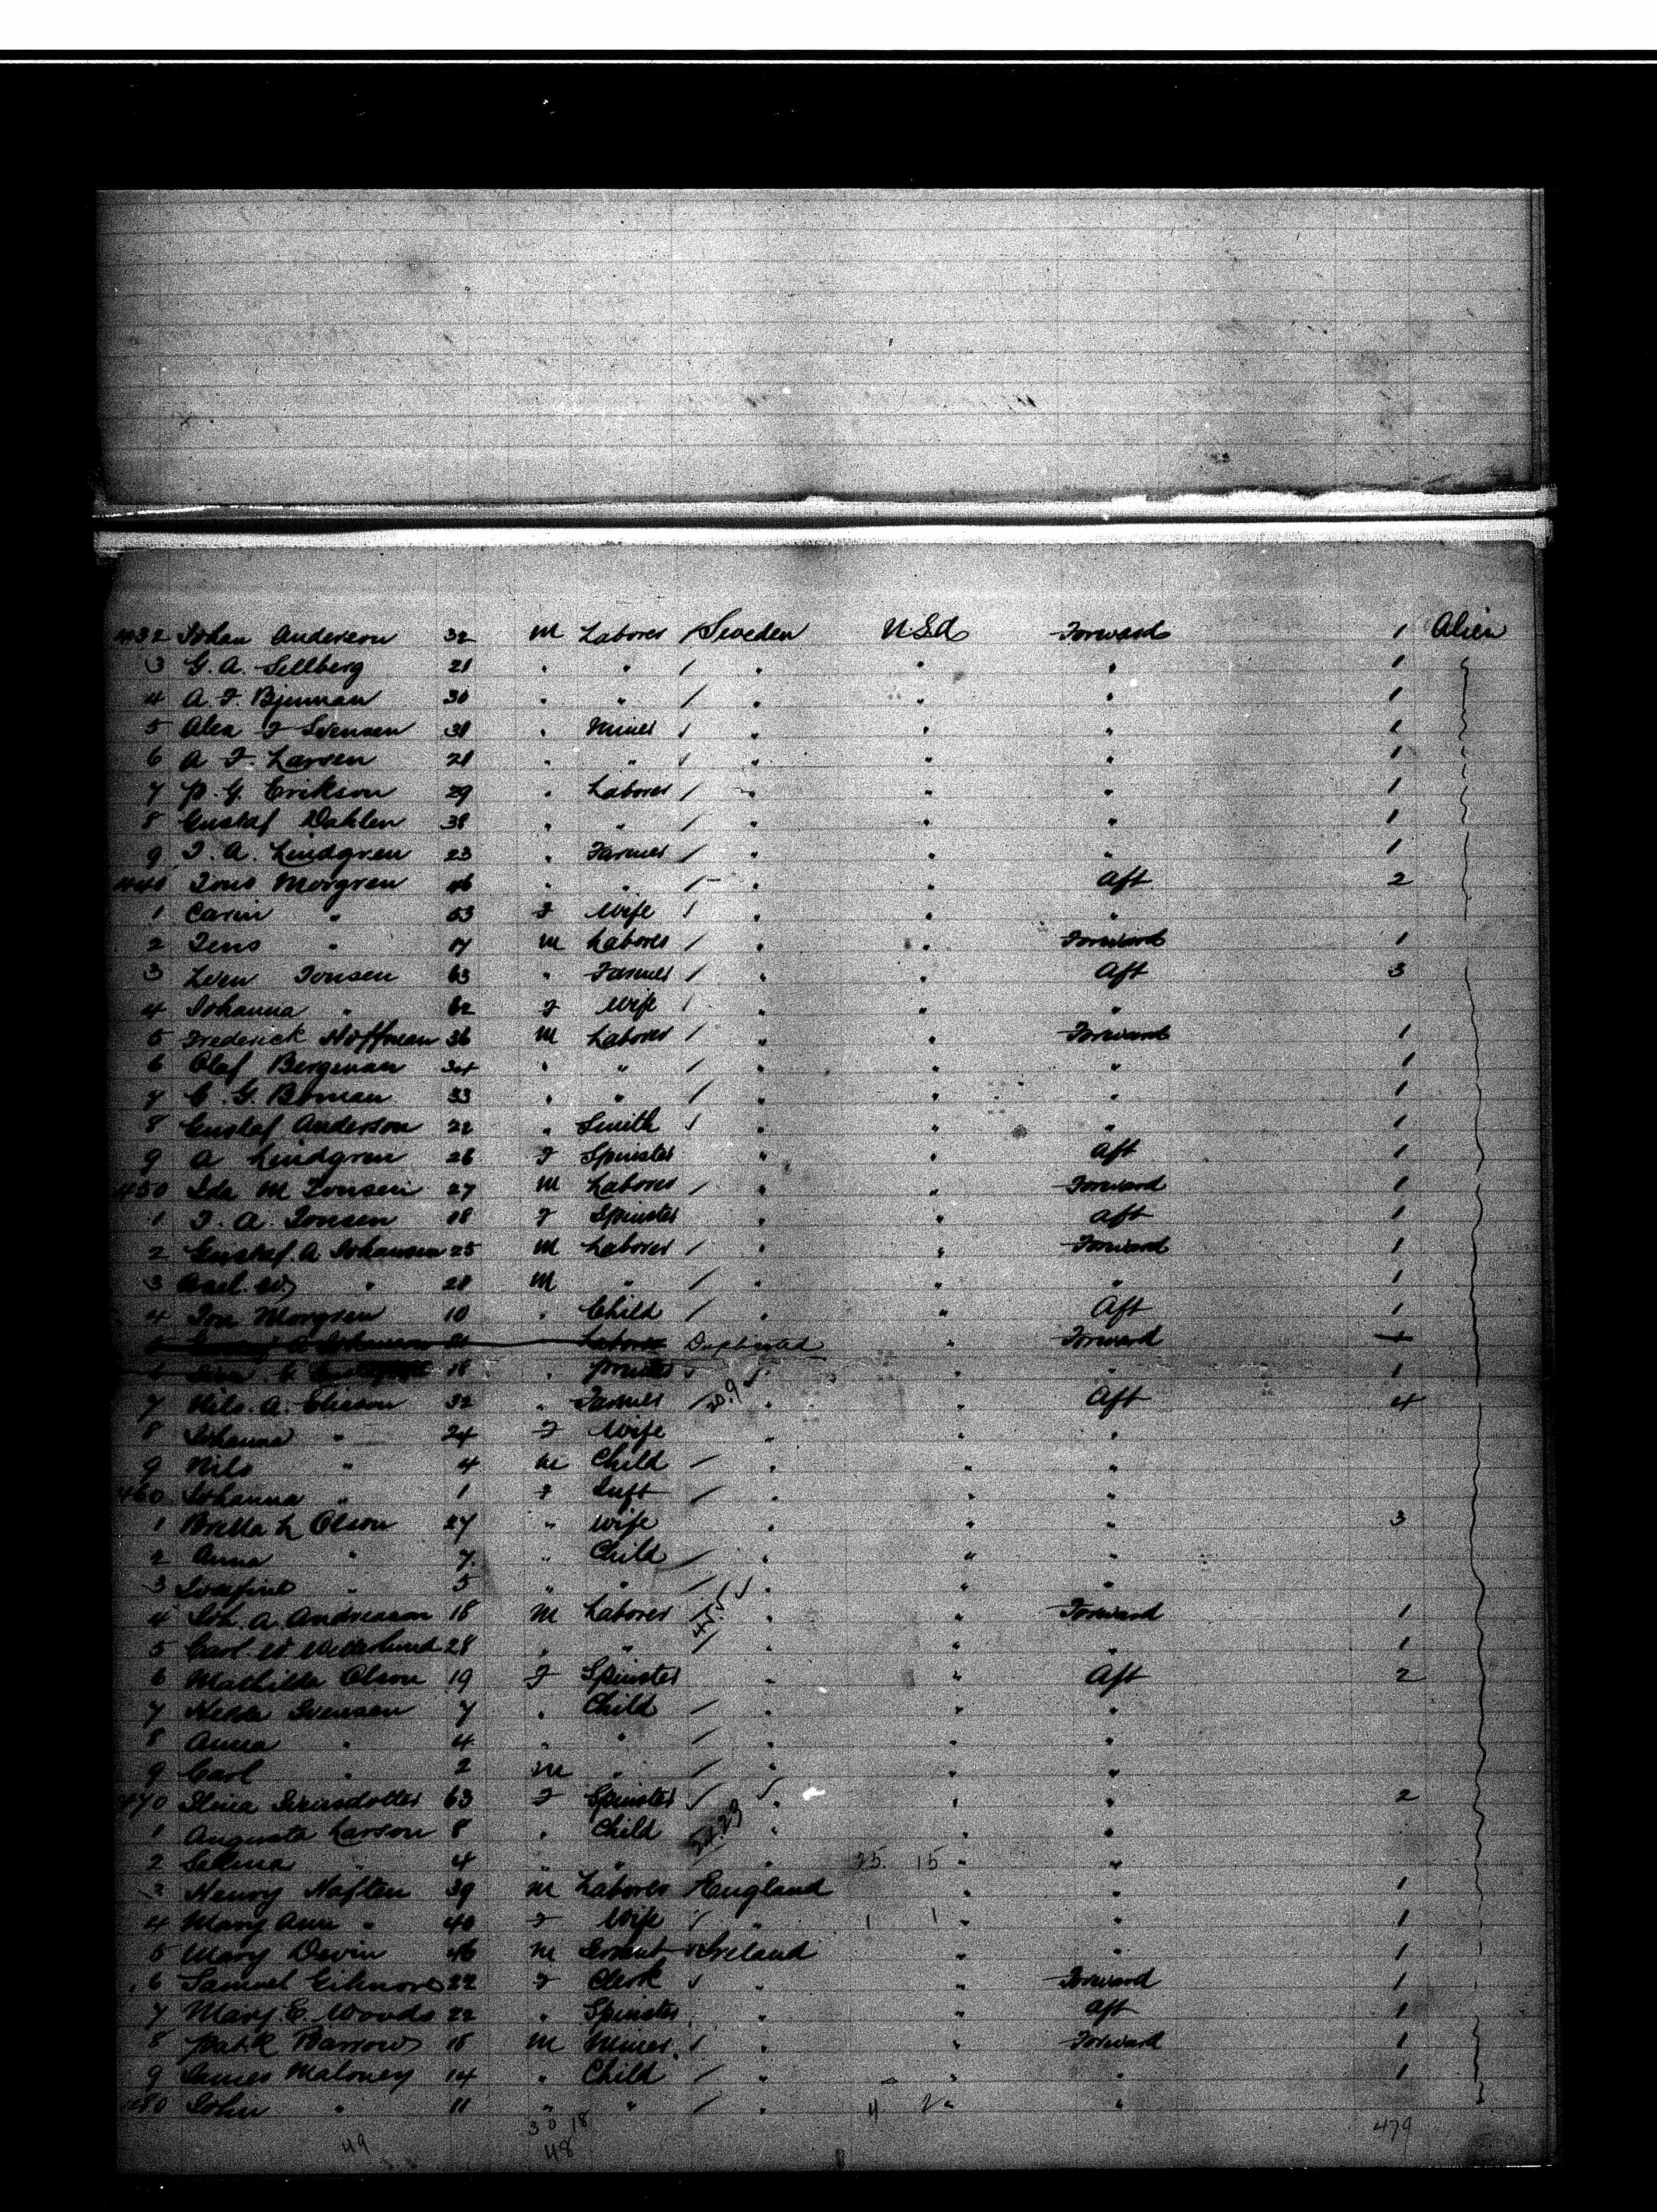 432 Johan Anderson 32 M Laborer / Sweden U.S.A Forward 1 Alien
3 G. A. Sellberg 21 " " / " " " 1
4 A. F. Bjurman 30 " " / " " " 1
5 Alex F Svensen 31 " Miner / " " " 1
6 A F. Larsen 21 " " / " " " 1
7 P. G. Erikson 29 " Laborer / " " " 1
8 Gustaf Dahlen 38 " " / " " " 1
9 J. A. Lindgren 23 " Farmer / " " " 1
440 Jons Morgren 46 " " / " " Aft 2
1 Carin " 53 F Wife / " " "
2 Jens " 17 M Laborer / " " Forward 1
3 Sven Jonsen 63 " Farmer / " " Aft 3
4 Johanna " 62 F Wife / " " "
5 Frederick Hoffman 36 M Laborer / " " Forward 1
6 Olaf Bergman 34 " " / " " " 1
7 C. G. Boman 33 " " / " " " 1
8 Gustaf Anderson 22 " Smith / " " " 1
9 A Lindgren 26 F Spinster " " Aft 1
450 Ide M Jonsen 27 M Laborer / " " Forward 1
1 J. A. Jonsen 18 F Spinster " " Aft 1
2 Gustaf. A Johansen 25 M Laborer / " " Forward 1
3 Axel. W " 28 M " / " " " 1
4 Jon Morgren 10 " Child / " " Aft 1
Laborer Duplicated " Forward
18 " " " 1
7 Nils. A. Eliason 32 " Farmer / 20.9 " " Aft 4
8 Johanna " 24 F Wife " " "
9 Nils " 4 M Child / " " "
460 Johanna " 1 F Inft / " " "
1 Britta L Olson 27 " Wife " " " 3
2 Anna " 7 " Child / " " "
3 Josefine " 5 " " / " " "
4 Joh. A. Andreason 18 M Laborer / " " Forward 1
5 Carl. W Wetterlund 28 " " / " " " 1
6 Mathilda Olson 19 F Spinster " " Aft 2
7 Hilda Svensen 7 " Child / " " "
8 Anna " 4 " " / " " "
9 Carl " 2 M " / " " "
470 63 F Spinster / " " " 2
1 Augusta Larson 8 " Child " " "
2 Selma " 4 " " " 25 15 " "
3 Henry Naften 39 M Laborer / England " " 1
4 Mary Ann " 40 F Wife / " 1 1 " " 1
5 Mary Devin 46 M Servant / Ireland " " 1
6 Samuel 22 F Clerk / " " Forward 1
7 Mary E. Woods 22 " Spinster " " Aft 1
8 Patk Barrow 18 M Miner / " " Forward 1
9 James Maloney 14 " Child / " " " 1
480 John " 11 " " / " 4 2 " "
49 30 18 479
48